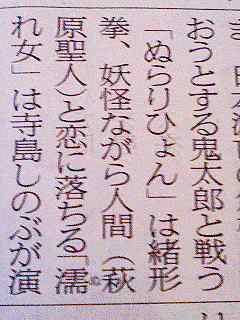 おうとする鬼太郎と戦う
「ぬらりひょん」は緒形
拳、妖怪ながら人間（萩
原聖人）と恋に落ちる「濡
れ女」は寺島しのぶが演